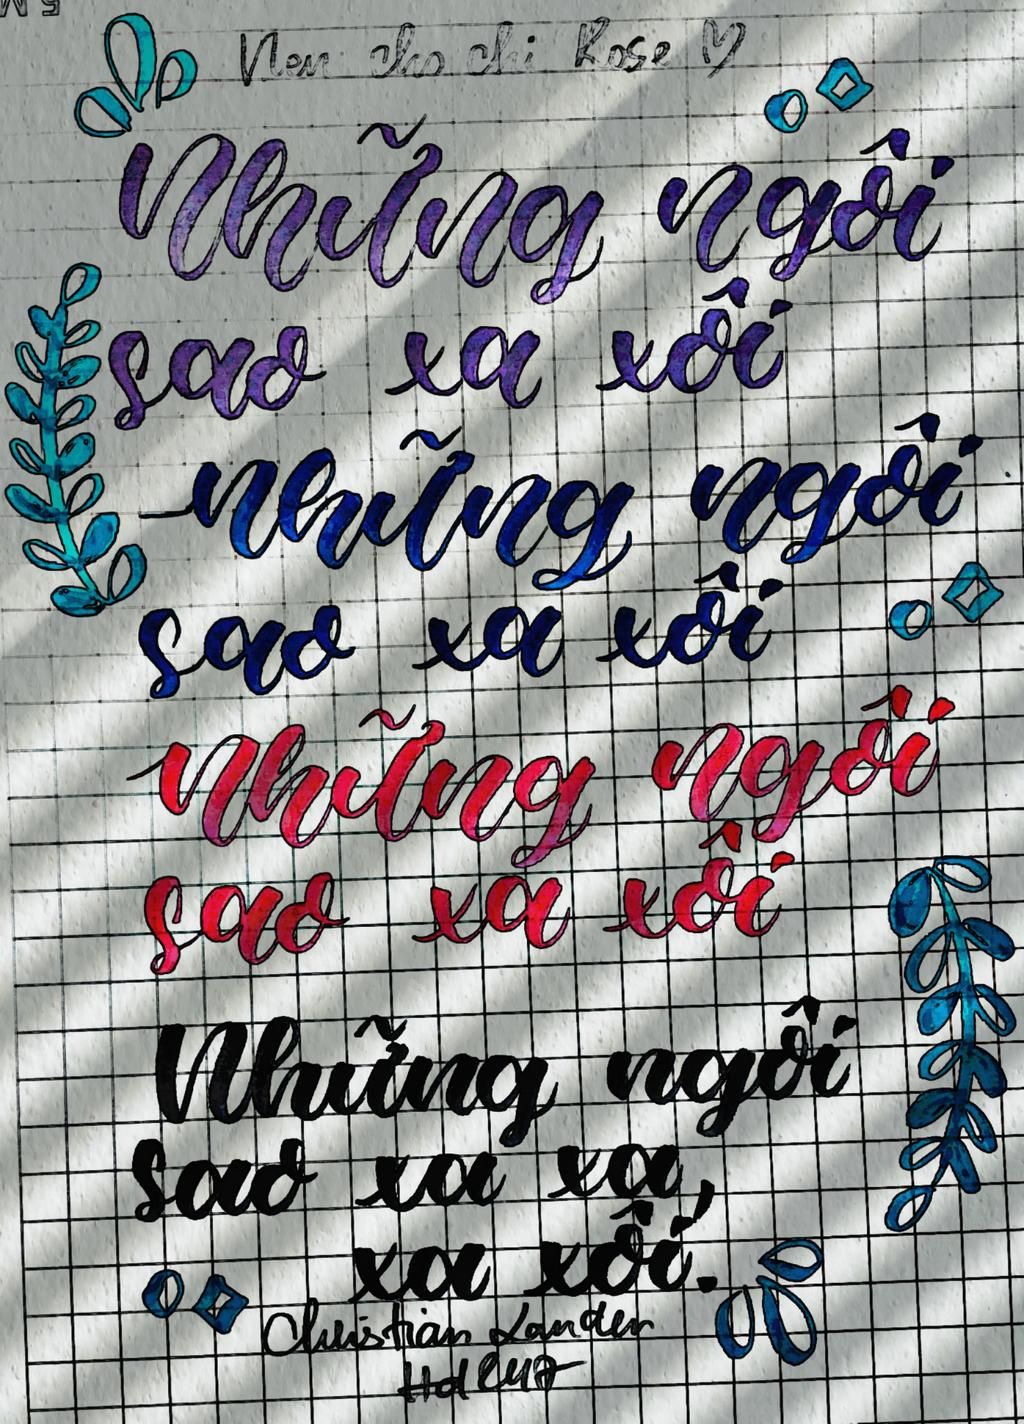 cho chi Rose ♡
Những ngôi
sao xa xôi
Những ngôi
sao xa xôi
Những ngôi
sao xa xôi
Những ngôi
sao xa xa,
xa xôi.
Christian Landen